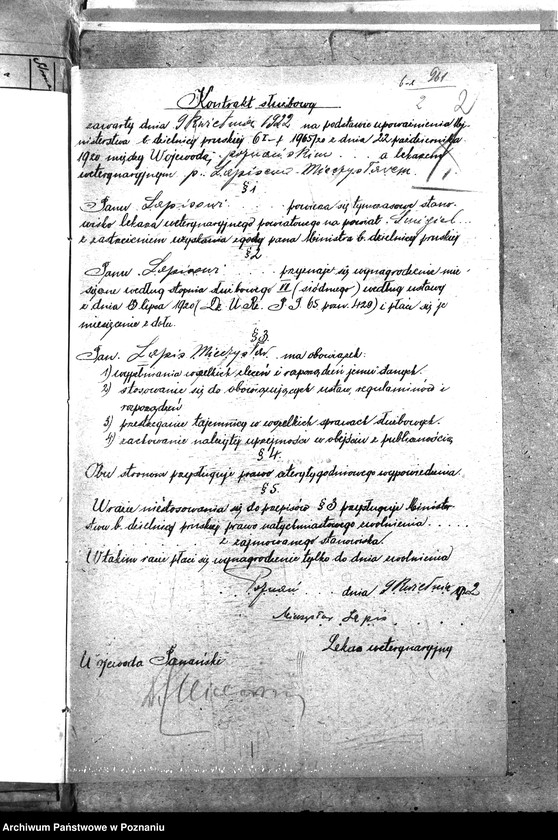 961
2
2
Kontrakt służbowy
zawarty dnia 9 Kwietnia 1922 na podstawie upoważnienia Mi-
nisterstwa b. dzielnicy pruskiej z dnia 22 października
1920 między Wojewodą poznańskim a lekarzem
weterynaryjnym p. Łapisem Mieczysławem
§ 1
Panu Łapisowi powierza się tymczasowe stano-
wisko lekarza weterynaryjnego powiatowego na powiat Śmigiel
z zastrzeżeniem uzyskania zgody pana Ministra b. dzielnicy pruskiej
§ 2
Panu Łapisowi przyznaje się wynagrodzenie mie-
sięczne według stopnia służbowego VII (siódmego) według ustawy
z dnia 13 lipca 1920/ Dz. U. Rz. P. P. 65 poz. 429) i płaci się je
miesięcznie z dołu.
§ 3.
Pan. Łapis Mieczysław ma obowiązek:
1) wypełniania wszelkich zleceń i rozporządzeń jemu danych.
2) stosowanie się do obowiązujących ustaw, regulaminów i
rozporządzeń
3) przestrzeganie tajemnicy w wszelkich sprawach służbowych.
4) zachowanie należytej uprzejmości w obejściu z publicznością
§ 4.
Obu stronom przysługuje prawo czterytygodniowego wypowiedzenia.
§ 5.
W razie niestosowania się do przepisów § 3 przysługuje Minister-
stwu b. dzielnicy pruskiej prawo natychmiastowego zwolnienia
z zajmowanego stanowiska.
W takim razie płaci się wynagrodzenie tylko do dnia zwolnienia
Poznań dnia 9 Kwietnia 1922
Mieczysław Łapis
Lekarz weterynaryjny
Wojewoda Poznański
Archiwum Państwowe w Poznaniu